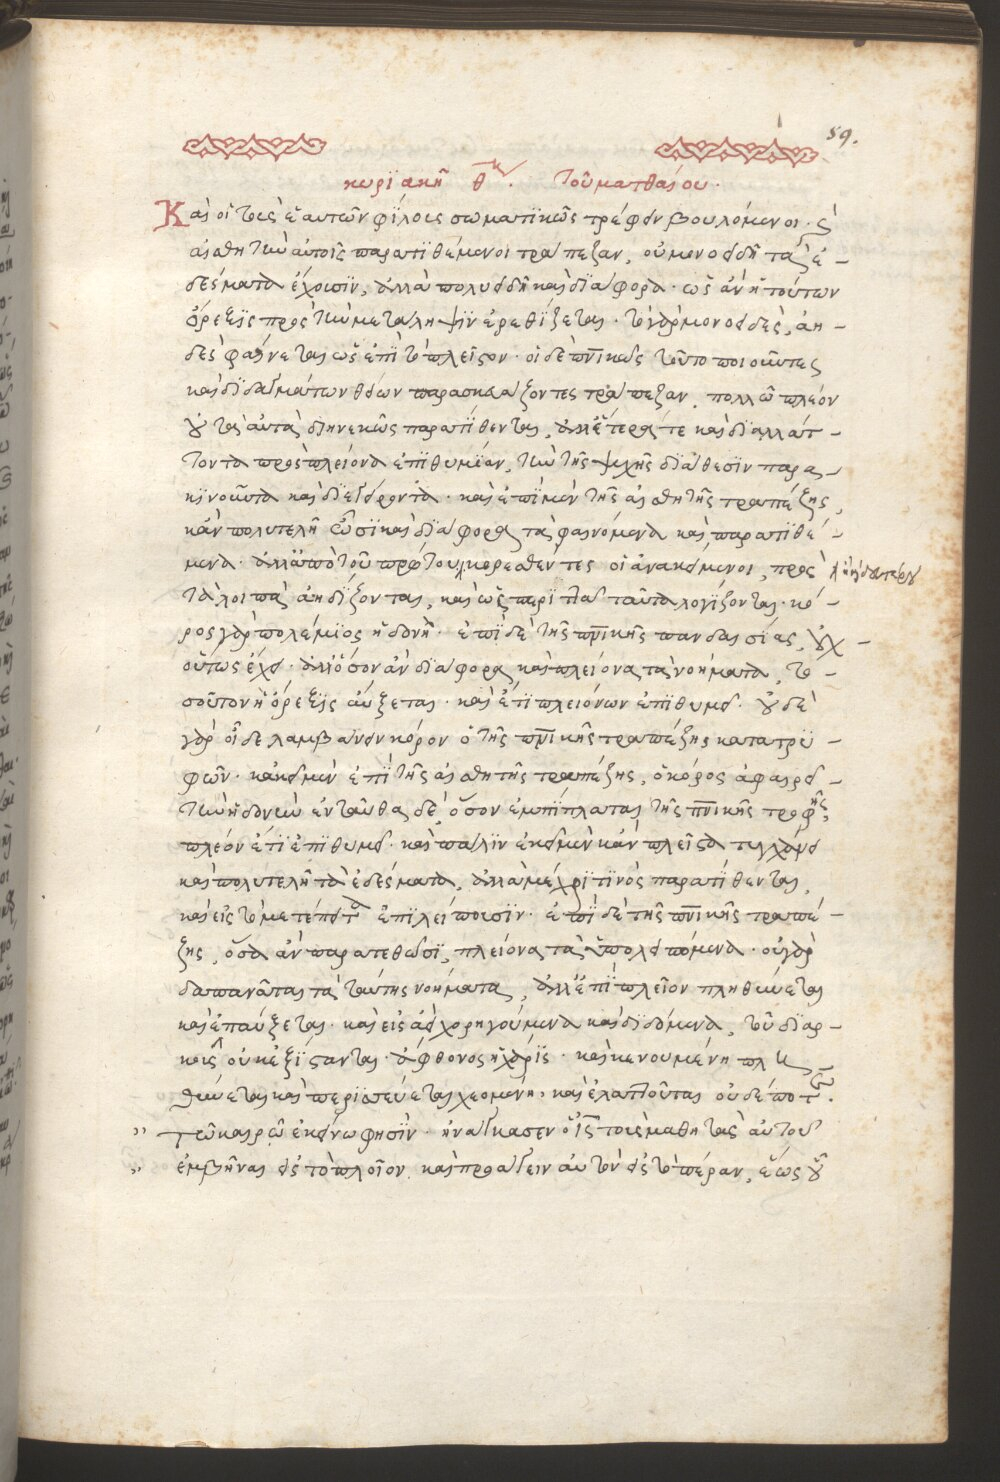 59.
κυριακῆ θ΄. τοῦ ματθαίου.
Καὶ οἱ τοὺς ἑαυτῶν φίλους σωματικῶς τρέφειν βουλόμενοι. καὶ
αἰσθητὴν αὐτοῖς παρατιθέμενοι τράπεζαν, οὐ μονοειδῆ τὰ ἐ-
δέσματα ἔχουσιν, ἀλλὰ πολυειδῆ καὶ διάφορα. ὡς ἂν ἡ τούτων
ὄρεξις πρὸς τὴν μετάληψιν ἐρεθίζεται. τὸ γὰρ μονοειδὲς, ἀη-
δὲς φαίνεται ὡς ἐπὶ τὸ πλεῖστον. οἱ δὲ πνικῶς τοῦτο ποιοῦντες
καὶ διδαγμάτων θείων παρασκευάζοντες τράπεζαν, πολλῶ πλέον
οὐ ταὐτὰ διηνεκῶς παρατίθενται, ἀλλ' ἕτερά τε καὶ διαλλάτ-
τοντα πρὸς πλείονα ἐπιθυμίαν, τὴν τῆς ψυχῆς διάθεσιν παρα-
κινοῦντα καὶ διεγείροντα. καὶ ἐπὶ μὲν τῆς αἰσθητῆς τραπέζης,
κἂν πολυτελῆ ὦσι καὶ διάφορα τὰ φαινόμενα καὶ παρατιθέ-
μενα. ἀλλ' ἀπὸ τοῦ πρώτου κορεσθέντες οἱ ἀνακείμενοι, πρὸς
ἢ δευτέρου
τὰ λοιπὰ ἀηδίζονται, καὶ ὡς περιττὰ ταῦτα λογίζονται. κό-
ρος γὰρ πολέμιος ἡδονῆ. ἐπὶ δὲ τῆς πνικῆς πανδαισίας, οὐχ
οὕτως ἔχει. ἀλλ' ὅσον ἂν διάφορα, καὶ πλείονα τὰ νοήματα, το-
σοῦτον ἡ ὄρεξις αὔξεται. καὶ ἔτι πλειόνων ἐπιθυμεῖ. οὐδὲ
γὰρ οἶδε λαμβάνειν κόρον ὁ τῆς πνικῆς τραπέζης κατατρυ-
φῶν. κἀκεῖ μὲν ἐπὶ τῆς αἰσθητῆς τραπέζης, ὁ κόρος ἀφαιρεῖ
τὴν ἡδονὴν ἐνταῦθα δὲ, ὅσον ἐμπίπλαται τῆς πνικῆς τροφῆς,
πλέον ἔτι ἐπιθυμεῖ. καὶ πάλιν ἐκεῖ μὲν κἂν πλεῖστα τυγχάνει
καὶ πολυτελῆ τὰ ἐδέσματα, ἀλλὰ μέχρι τινὸς παρατίθενται,
καὶ εἰς τὸ μετέπειτα ἐπιλείπουσιν. ἐπὶ δὲ τῆς πνικῆς τραπέ-
ζης, ὅσα ἂν παρατεθῶσι, πλείονα τὰ ὑπολειπόμενα. οὐ γὰρ
δαπανᾶται τὰ ταύτης νοήματα, ἀλλ' ἐπὶ πλεῖον πληθύνεται
καὶ ἐπαύξεται. καὶ εἰς ἀεὶ χορηγούμενα καὶ διδόμενα, τοῦ διαρ-
κεῖν οὐκ ἐξίστανται. ἄφθονος ἡ χάρις. καὶ κενουμένη πλη-
θύνεται καὶ περισσεύεται χεομένη, καὶ ἐλαττοῦται οὐδέποτε.
" τῶ καιρῶ ἐκείνω φησὶν. ἠνάγκασεν ὁ ις τοὺς μαθητὰς αὐτοῦ
" ἐμβῆναι εἰς τὸ πλοῖον. καὶ προάγειν αὐτὸν εἰς τὸ πέραν, ἕως οὗ